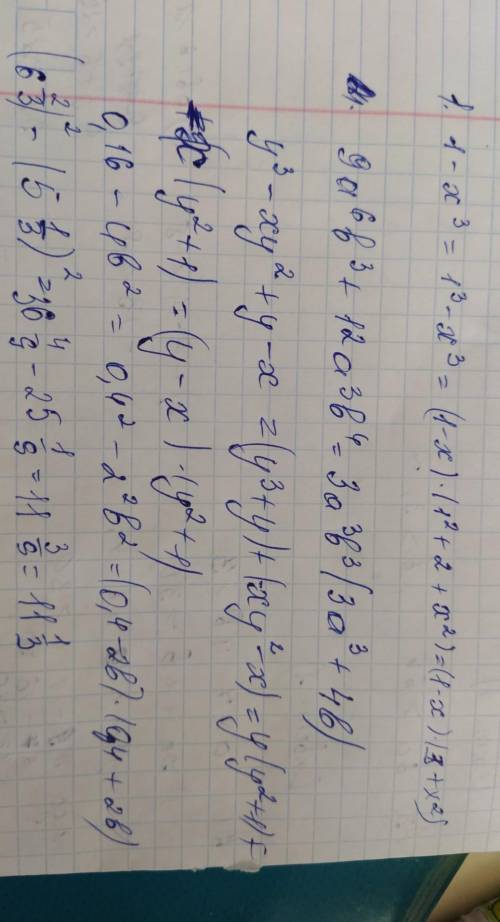 1. 1 - x³ = 1³ - x³ = (1-x) · (1² + 2 + x²) = (1-x)(2 + x²)
9a⁶b³ + 12a³b⁴ = 3a³b³(3a³ + 4b)
y³ - xy² + y - x = (y³ + y) + (xy² - x) = y(y² + 1) +
(y² + 1) = (y - x) · (y² + 1)
0,16 - 4b² = 0,4² - 2²b² = (0,4 - 2b) · (0,4 + 2b)
(6 2/3)² - (5 1/3)² = 36 4/9 - 25 1/9 = 11 3/9 = 11 1/3